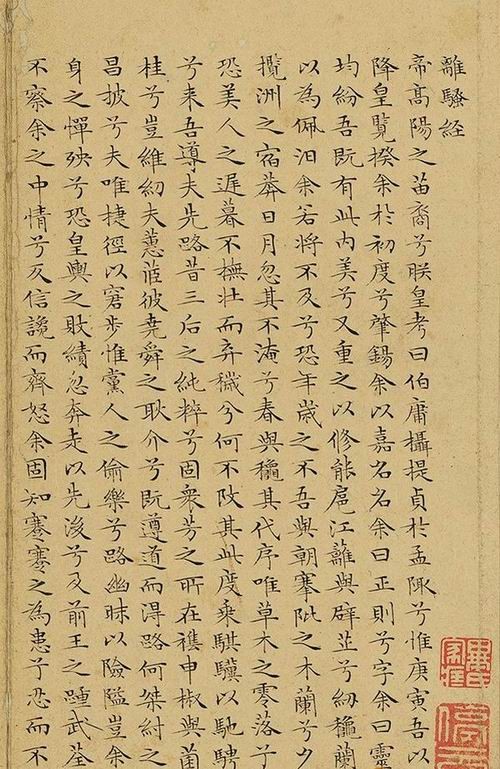 離騷経
帝髙陽之苗裔兮朕皇考曰伯庸攝提貞於孟陬兮惟庚寅吾以
降皇覽揆余於初度兮肇錫余以嘉名名余曰正則兮字余曰靈
均紛吾既有此內美兮又重之以修能扈江蘺與辟芷兮紉穐蘭
以為佩汩余若將不及兮恐年歲之不吾與朝搴阰之木蘭兮夕
攬洲之宿莽日月忽其不淹兮春與穐其代序唯草木之零落兮
恐美人之遲暮不撫壯而弃穢兮何不改其此度乗騏驥以馳騁
兮来吾導夫先路昔三后之純粹兮固衆芳之所在襍申椒與菌
桂兮豈維紉夫蕙茝彼堯舜之耿介兮既遵道而得路何桀紂之
昌披兮夫唯捷徑以窘步惟黨人之偷樂兮路幽昧以險隘豈余
身之憚殃兮恐皇輿之敗績忽奔走以先後兮及前王之踵武荃
不察余之中情兮反信讒而齊怒余固知謇謇之為患兮忍而不